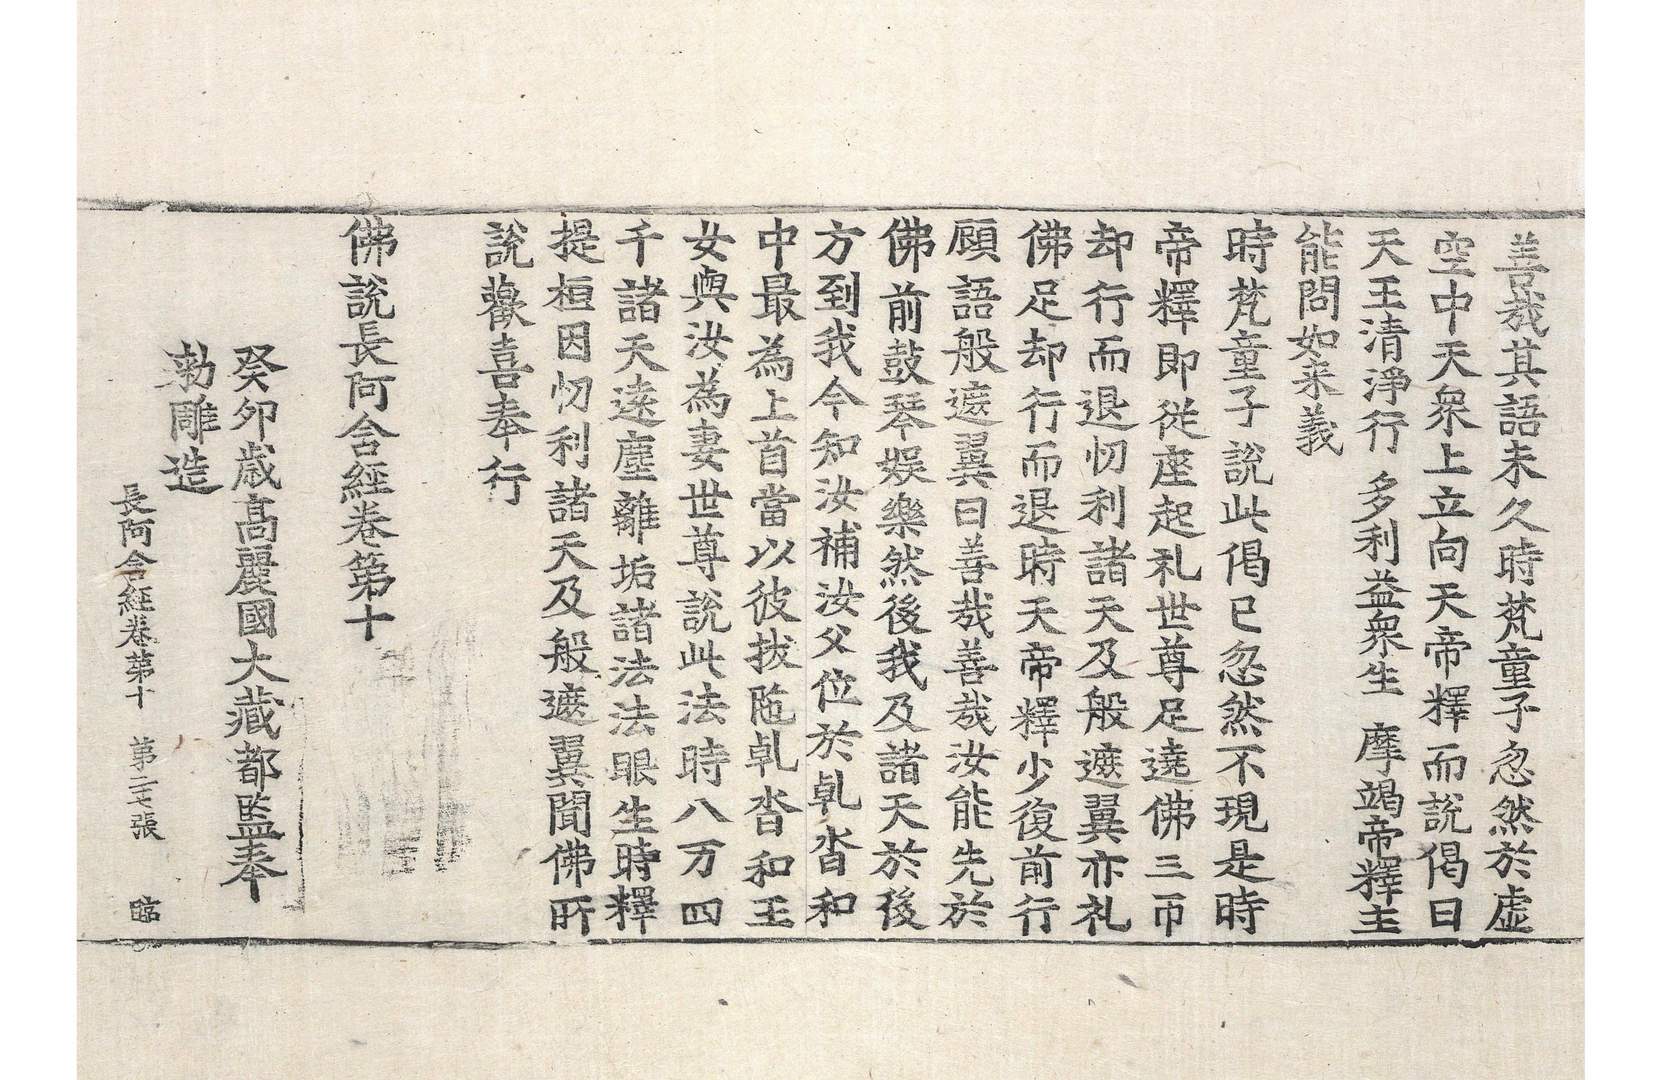 善哉其語未久時梵童子忽然於虛
空中天衆上立向天帝釋而說偈曰
天王清淨行 多利益衆生 摩竭帝釋主
能問如来義
時梵童子說此偈已忽然不現是時
帝釋即從座起礼世尊足遶佛三帀
却行而退忉利諸天及般遮翼亦礼
佛足却行而退時天帝釋少復前行
顧語般遮翼曰善哉善哉汝能先於
佛前鼓琴娛樂然後我及諸天於後
方到我今知汝補汝父位於乹沓和
中最為上首當以彼拔陁乹沓和王
女與汝為妻世尊說此法時八万四
千諸天遠塵離垢諸法法眼生時釋
提桓因忉利諸天及般遮翼聞佛所
說歡喜奉行
佛說長阿含經卷第十
癸卯歲高麗國大藏都監奉
勑雕造
長阿含經卷第十 第二十七張 臨